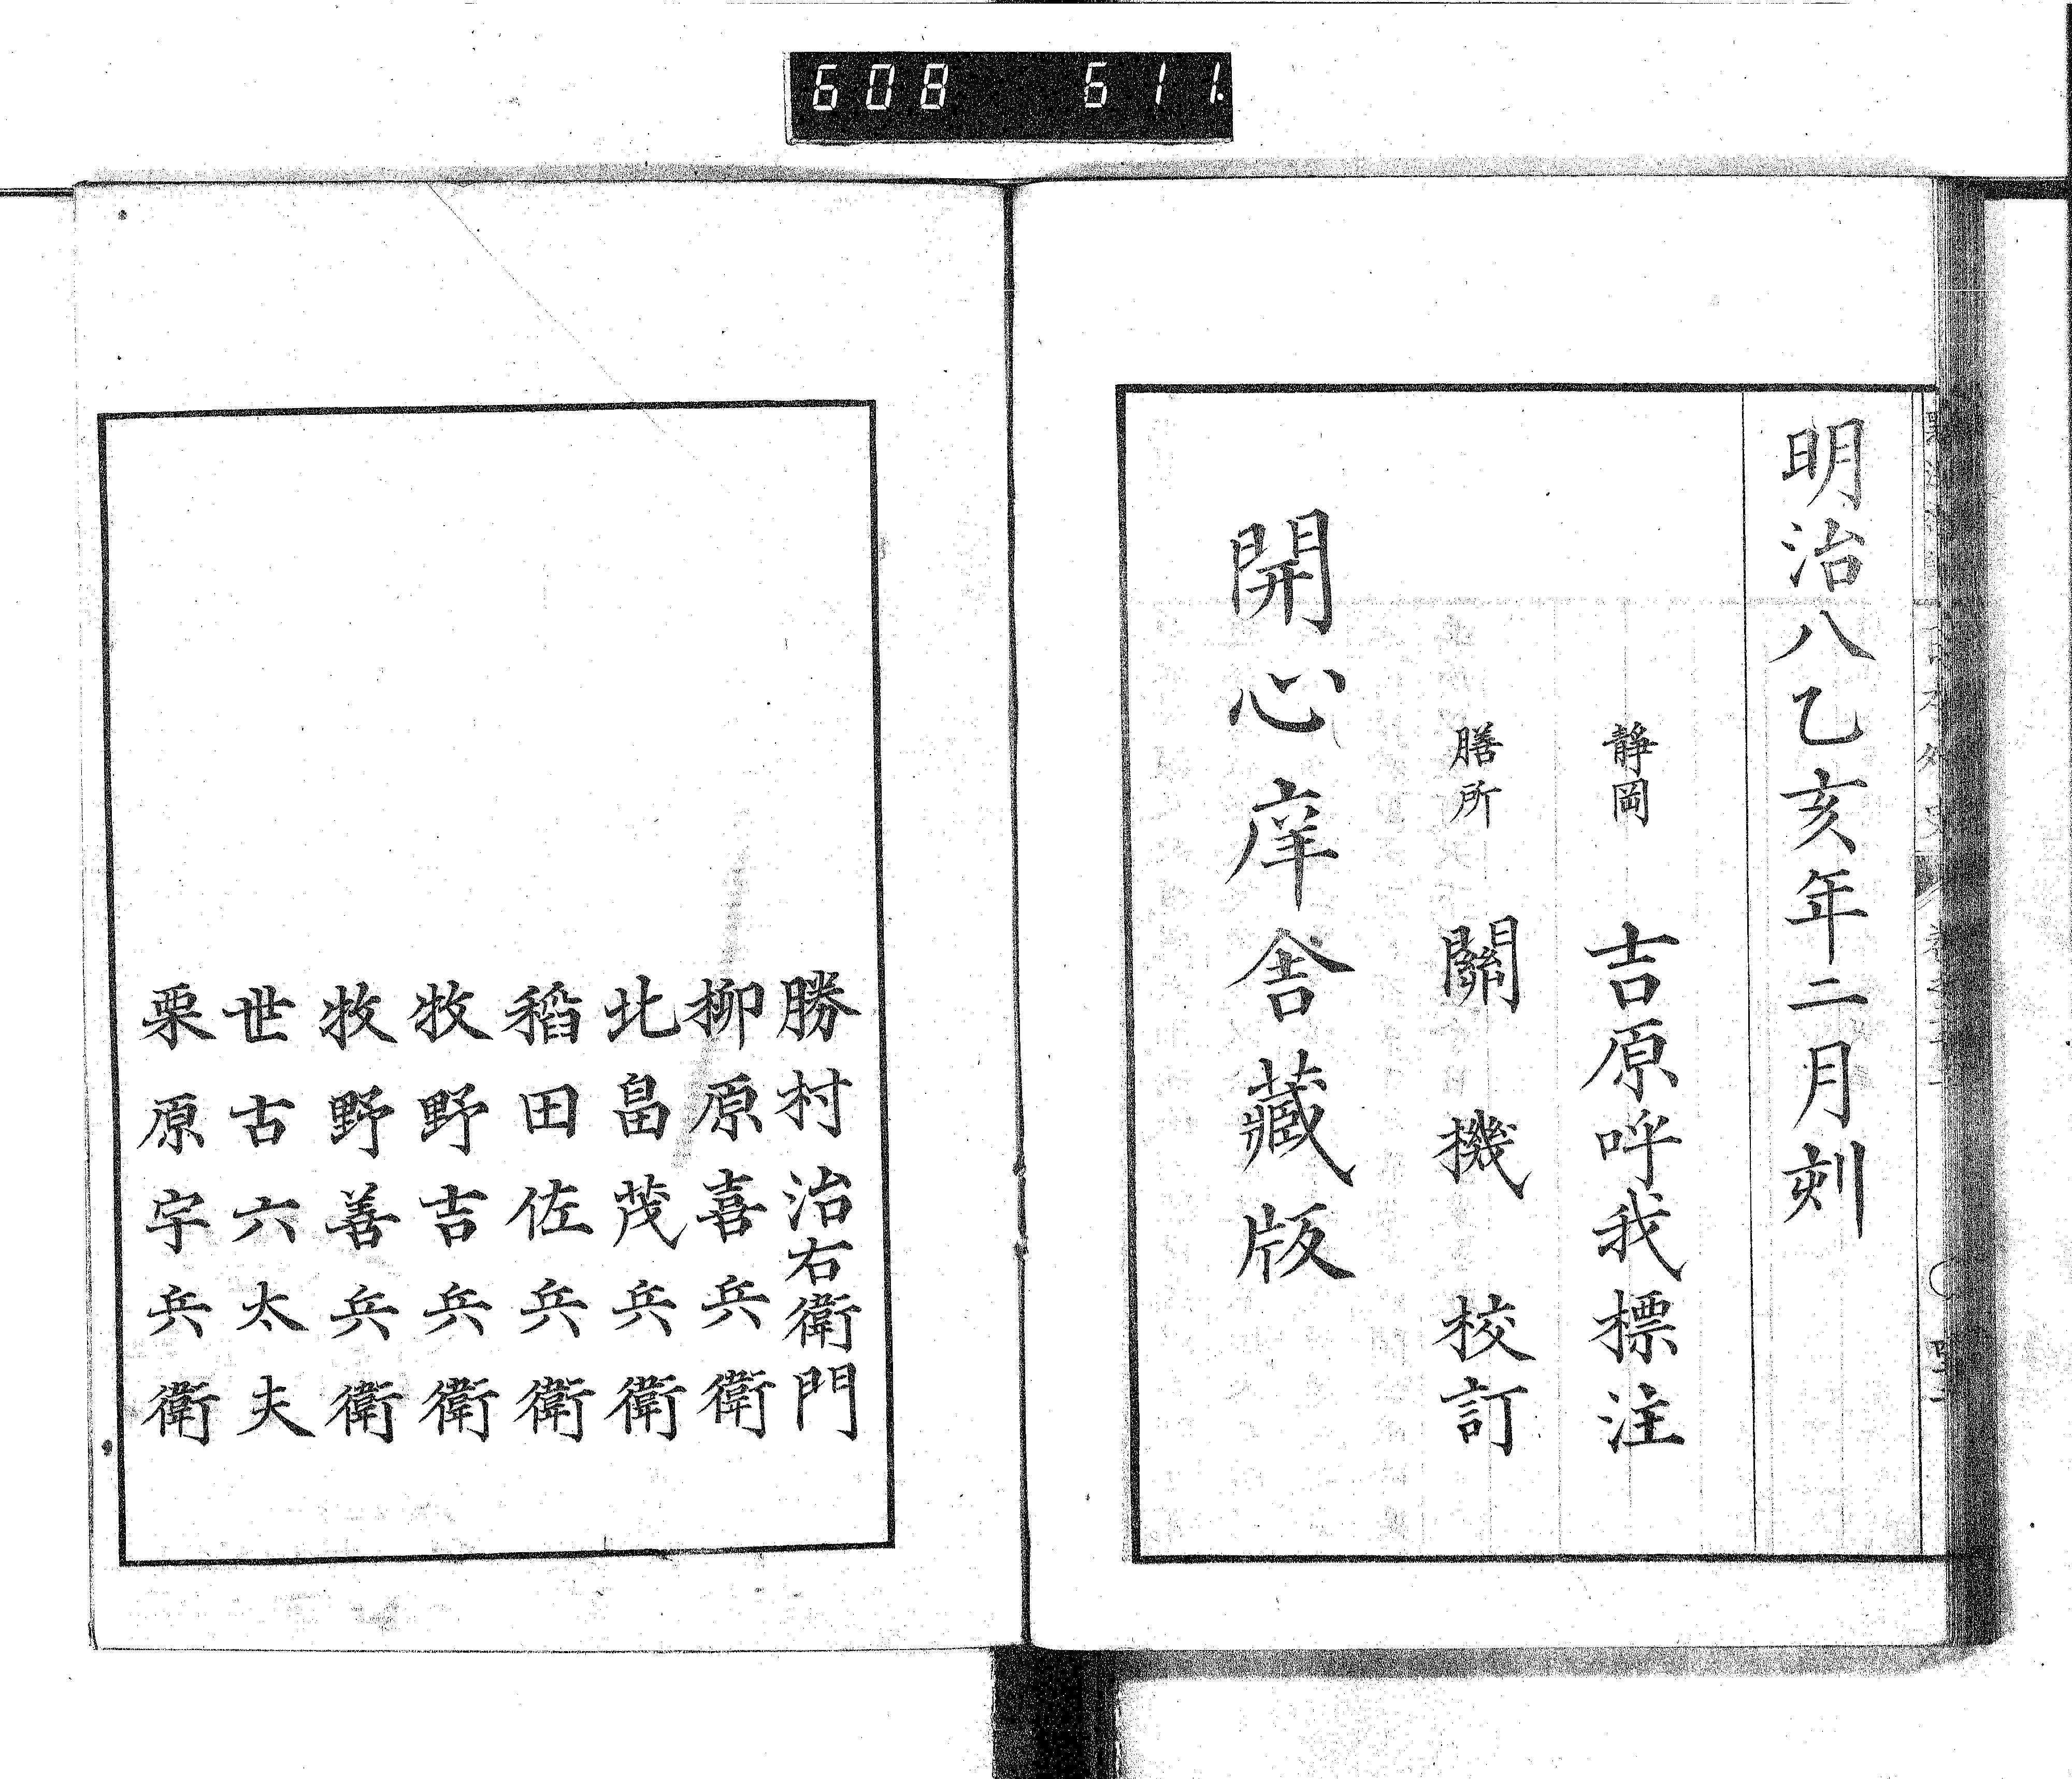 608 611.
明治八乙亥年二月刻
靜岡 吉原呼我標注
膳所 關機校訂
開心庠舎藏版
勝村治右衛門
柳原喜兵衛
北畠茂兵衛
稻田佐兵衛
牧野吉兵衛
牧野善兵衛
世古六太夫
栗原宇兵衛